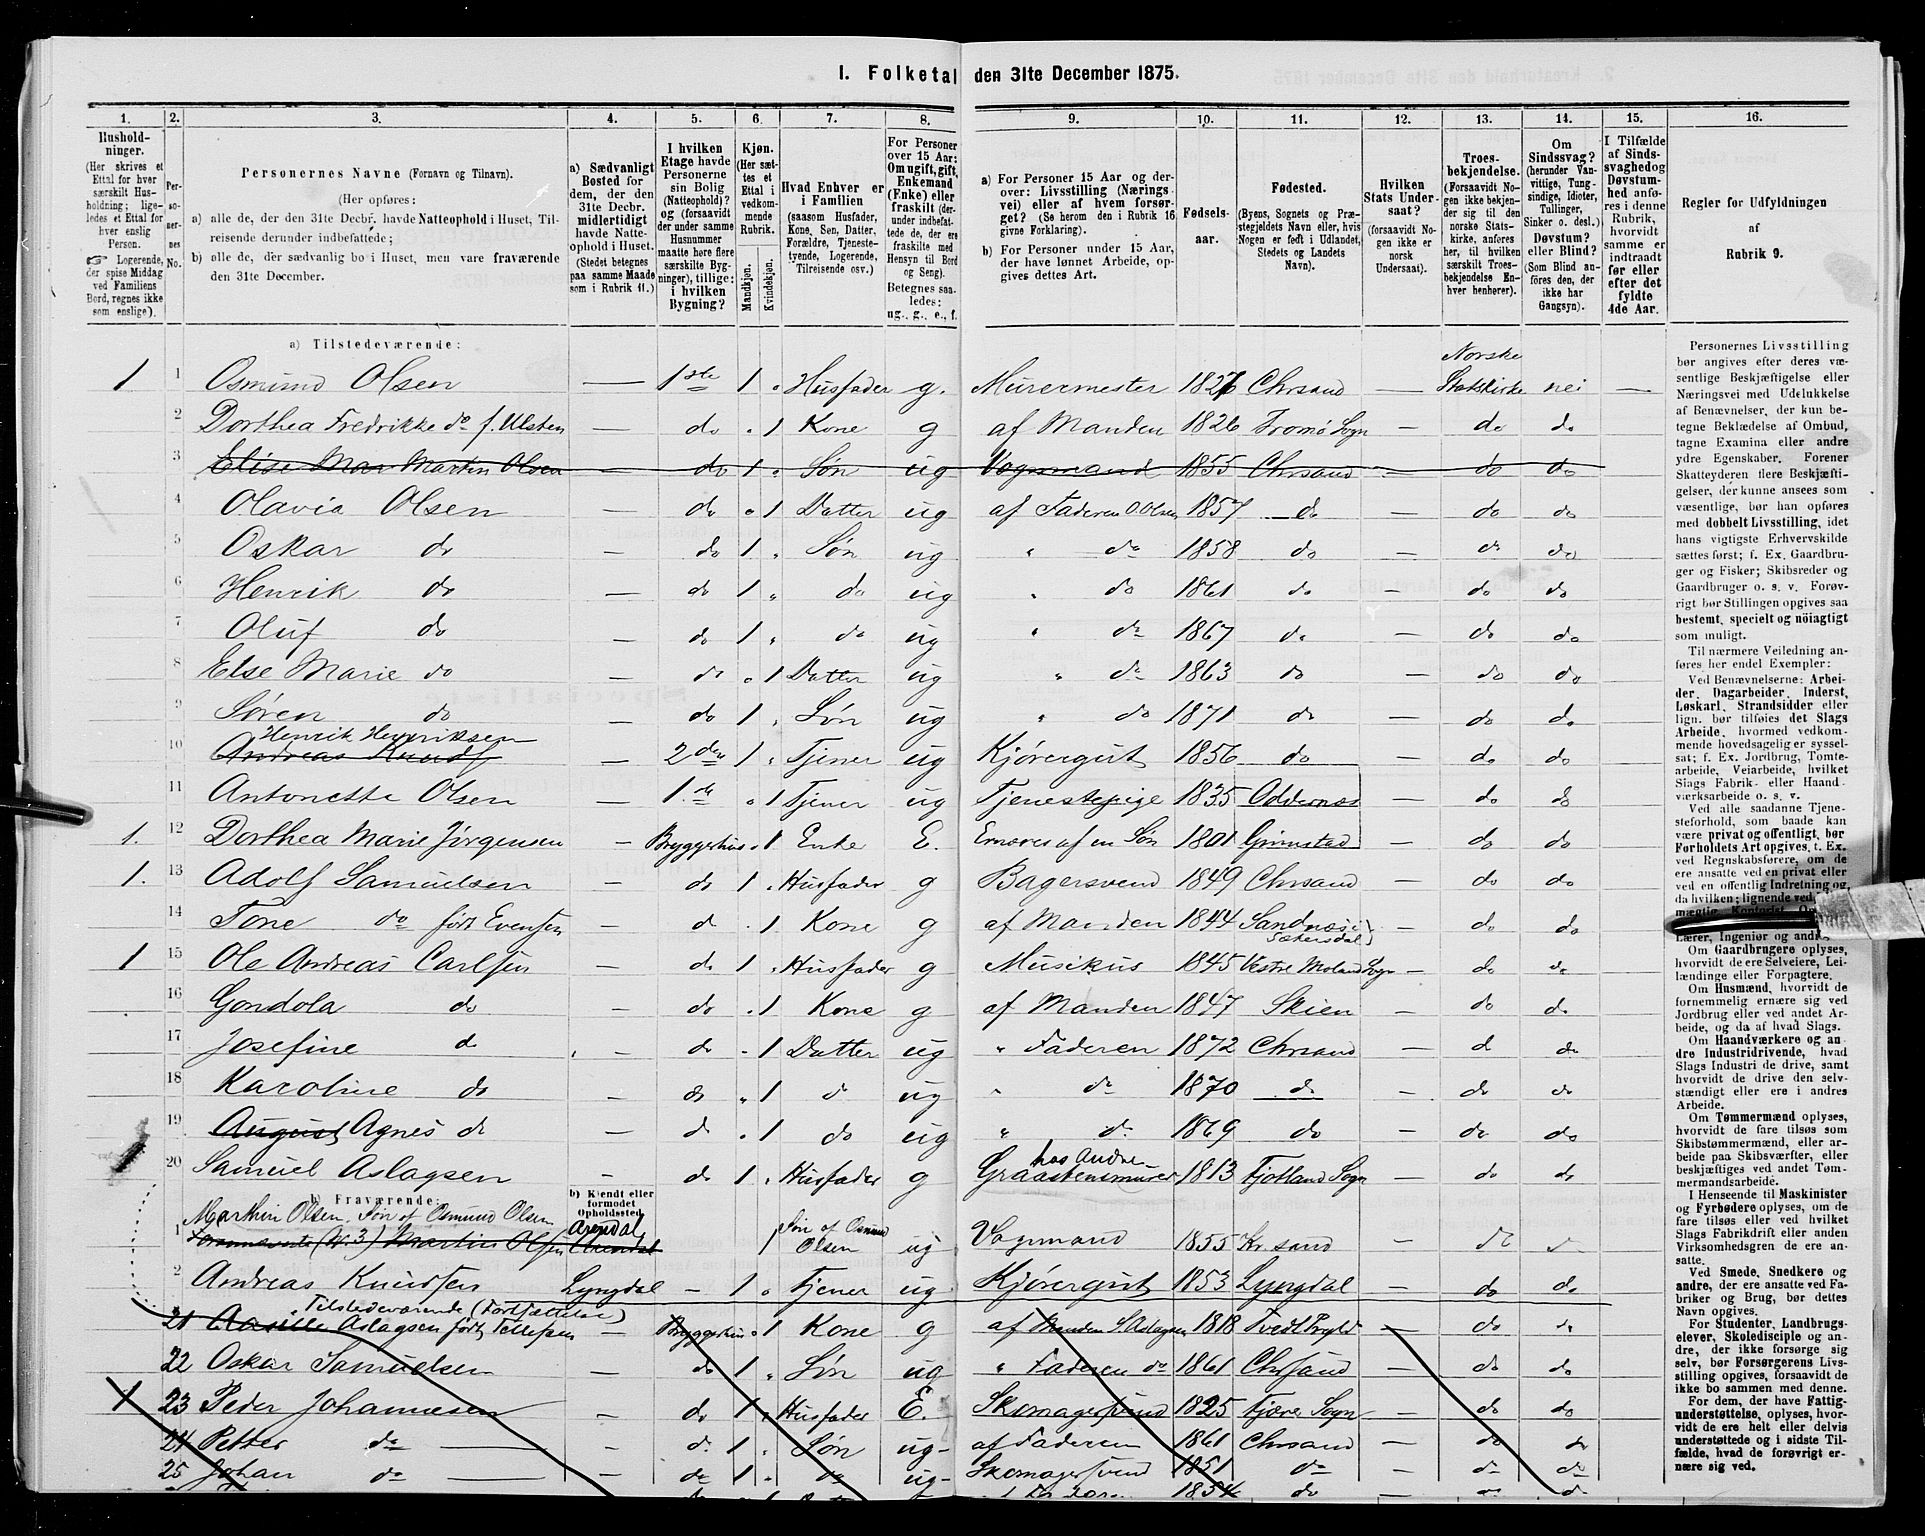 1. Folketal den 31te December 1875.
1. 2. 3. 4. 5. 6. 7. 8. 9. 10. 11. 12. 13. 14. 15. 16.
Hushold-
ninger.
(Her skrives et
Ettal for hver
særskilt Hus-
holdning; lige-
ledes et Ettal for
hver enslig
Person.
☞ Logerende,
der spise Middag
ved Familiens
Bord, regnes ikke
som enslige).
Per-
so-
ner-
nes
No.
Personernes Navne (Fornavn og Tilnavn).
(Her opføres:
a) alle de, der den 31te Decbr. havde Natteophold i Huset, Til-
reisende derunder indbefattede;
b) alle de, der sædvanlig bo i Huset, men vare fraværende
den 31te December.
a) Sædvanligt
Bosted for
dem, der den
31te Decbr.
midlertidigt
havde Natte-
ophold i Huset.
(Stedet betegnes
paa samme Maade
som i Rubrik 11.)
I hvilken
Etage havde
Personerne
sin Bolig
(Natteophold)?
og (forsaavidt
der under samme
Husnummer
maatte høre flere
særskilte Byg-
ninger), tillige:
i hvilken
Bygning?
Kjøn.
(Her sæt-
tes et
Ettal i
vedkom-
mende
Rubrik.
Mandkjøn.
Kvindekjøn.
Hvad Enhver er
i Familien
(saasom Husfader,
Kone, Søn, Datter,
Forældre, Tjeneste-
tyende, Logerende,
Tilreisende osv.)
For Personer
over 15 Aar:
Om ugift, gift,
Enkemand
(Enke) eller
fraskilt (der-
under indbefat-
tede de, der ere
fraskilte med
Hensyn til Bord
og Seng).
Betegnes saa-
ledes:
ug., g., e., f.
a) For Personer 15 Aar og der-
over: Livsstilling (Nærings-
vei) eller af hvem forsør-
get? (Se herom den i Rubrik 16
givne Forklaring).
b) For Personer under 15 Aar,
der have lønnet Arbeide, op-
gives dettes Art.
Fødsels-
aar.
Fødested.
(Byens, Sognets og Præ-
stegjeldets Navn eller, hvis
Nogen er født i Udlandet,
Stedets og Landets
Navn).
Hvilken
Stats Under-
saat?
(Forsaavidt No-
gen ikke er
norsk
Undersaat).
Troes-
bekjendelse.
(Forsaavidt No-
gen ikke bekjen-
der sig til den
norske Stats-
kirke, anføres
her, til hvilken
særskilt Troes-
bekjendelse En-
hver henhører).
Om
Sindssvag?
(herunder Van-
vittige, Tung-
sindige, Idioter,
Tullinger,
Sinker o. desl.)
Døvstum?
eller Blind?
(Som Blind an-
føres den, der
ikke har
Gangsyn).
I Tilfælde
af Sinds-
svaghed og
Døvstum-
hed anfø-
res i denne
Rubrik,
hvorvidt
samme er
indtraadt
før eller
efter det
fyldte
4de Aar.
Regler for Udfyldningen
af
Rubrik 9.
a) Tilstedeværende:
1 1 Osmund Olsen — 1ste 1 Husfader g. Murermester 1826 Chrsand — Norske Statskirke nei —
2 Dorthea Fredrikke do f. Ulsten do 1 Kone g af Manden 1826 Tromø Sogn — do do
3 Elise Mar Martin Olsen — do 1 Søn ug Vognmand 1855 Chrsand — do do
4 Olavia Olsen — do 1 Datter ug af Faderen O Olsen 1857 do — do do
5 Oskar do — do 1 Søn ug " do 1858 do — do do
6 Henrik do — do 1 do ug " do 1861 do — do do
7 Oluf do — do 1 do ug " do 1867 do — do do
8 Else Marie do do 1 Datter ug " do 1863 do — do do
9 Søren do — do 1 Søn ug " do 1871 do — do do
Henrik Henriksen
10 Andreas Knuds — 2den 1 Tjener ug Kjøregut 1856 do — do do
11 Antonette Olsen 1ste 1 Tjener ug Tjenestepige 1835 Oddernæs — do do
1. 12 Dorthea Marie Jørgensen — Bryggerhus 1 Enke E. Ernæres af en Søn 1801 Grimstad do do
1. 13 Adolf Samuelsen — do 1 Husfader g Bagersvend 1849 Chrsand — do do
14 Tone do født Evensen — d 1 Kone g af Manden 1844 Sandnæs i Sætersdal — do do
1 15 Ole Andreas Carlsen — do 1 Husfader g Musikus 1845 Vestre Moland Sogn — do do
16 Gondola do — do 1 Kone g af Manden 1847 Skien — do do
17 Josefine do — do 1 Datter ug " Faderen 1872 Chrsand — d do
18 Karoline do — do 1 d ug " do 1870 do — do do
19 August Agnes do — do 1 do ug " do 1869 do — do do
1 20 Samuel Aslagsen — do 1 Husfader g Graastensmurer hos Andre 1813 Fjotland Sogn do do
b) Fraværende:
b) Kjendt eller
formodet
Opholdssted.
1 Marthin Olsen. Søn af Osmund Olsen Arendal 1 Søn af Osmund Olsen ug Vognmand 1855 Kr.sand — do do
(No. 3) Martin Olsen Arendal
2 Andreas Knudsen Lyngdal — 1 Tjener ug Kjøregut 1853 Lyngdal — do do
Tilstedeværende (Fortsættelse)
21 Aasille Aslagsen født Tellefsen — Bryggerhus 1 Kone g af Manden S Aslagsen 1818 — do do
22 Oskar Samuelsen do 1 Søn ug " Faderen do 1861 Chrsand — do do
1 23 Peder Johannesen — do 1 Husfader E. Skomagersvend 1825 Fjære Sogn — do do
24 Petter do — do 1 Søn ug af Faderen 1861 Chrsand — do do
25 Johan do — do 1 do ug Skomagersvend 1851 do — do do
1854 do
Personernes Livsstilling
bør angives efter deres væ-
sentlige Beskjæftigelse eller
Næringsvei med Udelukkelse
af Benævnelser, der kun be-
tegne Beklædelse af Ombud,
tagne Examina eller andre
ydre Egenskaber. Forener
Skatteyderen flere Beskjæfti-
gelser, der kunne ansees som
væsentlige, bør han opføres
med dobbelt Livsstilling, idet
hans vigtigste Erhvervskilde
sættes først; f. Ex. Gaardbru-
ger og Fisker; Skibsreder og
Gaardbruger o. s. v. Forøv-
rigt bør Stillingen opgives saa
bestemt, specielt og nöiagtigt
som muligt.
Til nærmere Veiledning an-
føres her endel Exempler:
Ved Benævnelserne: Arbei-
der, Dagarbeider, Inderst,
Løskarl, Strandsidder eller
lign. bør tilføies det Slags
Arbeide, hvormed vedkom-
mende hovedsagelig er syssel-
sat; f. Ex. Jordbrug, Tomte-
arbeide, Veiarbeide, hvilket
Slags Fabrik- eller Haand-
værksarbeide o. s. v.
Ved alle saadanne Tjene-
steforhold, som baade kan
være privat og offentligt, bør
Forholdets Art opgives, t. Ex.
ved Regnskabsførere, om de
ere ansatte ved en privat eller
ved en offentlig Indretning og
da hvilken; lignende ved
Lærer, Ingeniør og andre
Om Gaardbrugere oplyses,
hvorvidt de ere Selveiere, Lei-
lændinge eller Forpagtere.
Om Husmænd, hvorvidt de
fornemmelig ernære sig ved
Jordbrug eller ved andet Ar-
beide, og da af hvad Slags.
Om Haandværkere og an-
dre Industridrivende, hvad
Slags Industri de drive, samt
hvorvidt de drive den selv-
stændigt eller ere i andres
Arbeide.
Om Tømmermænd oplyses,
hvorvidt de fare tilsøs som
Skibstømmermænd, eller ar-
beide paa Skibsværfter, eller
beskjæftiges ved andet Tøm-
mermandsarbeide.
I Henseende til Maskinister
og Fyrbødere oplyses, om de
fare tilsøs eller ved hvilket
Slags Fabrikdrift eller anden
Virksomhedsgren de ere an-
satte.
Ved Smede, Snedkere og
andre, der ere ansatte ved Fa-
briker og Brug, bør dettes
Navn opgives.
For Studenter, Landbrugs-
elever, Skoledisciple og an-
dre, der ikke forsørge sig
selv, bør Forsørgerens Livs-
stilling opgives, forsaavidt de
ikke bo sammen med denne.
For dem, der have Fattig-
understøttelse, oplyses, hvor-
vidt de ere helt eller delvis
understøttede og i sidste Til-
fælde, hvad de forøvrigt er-
nære sig ved.